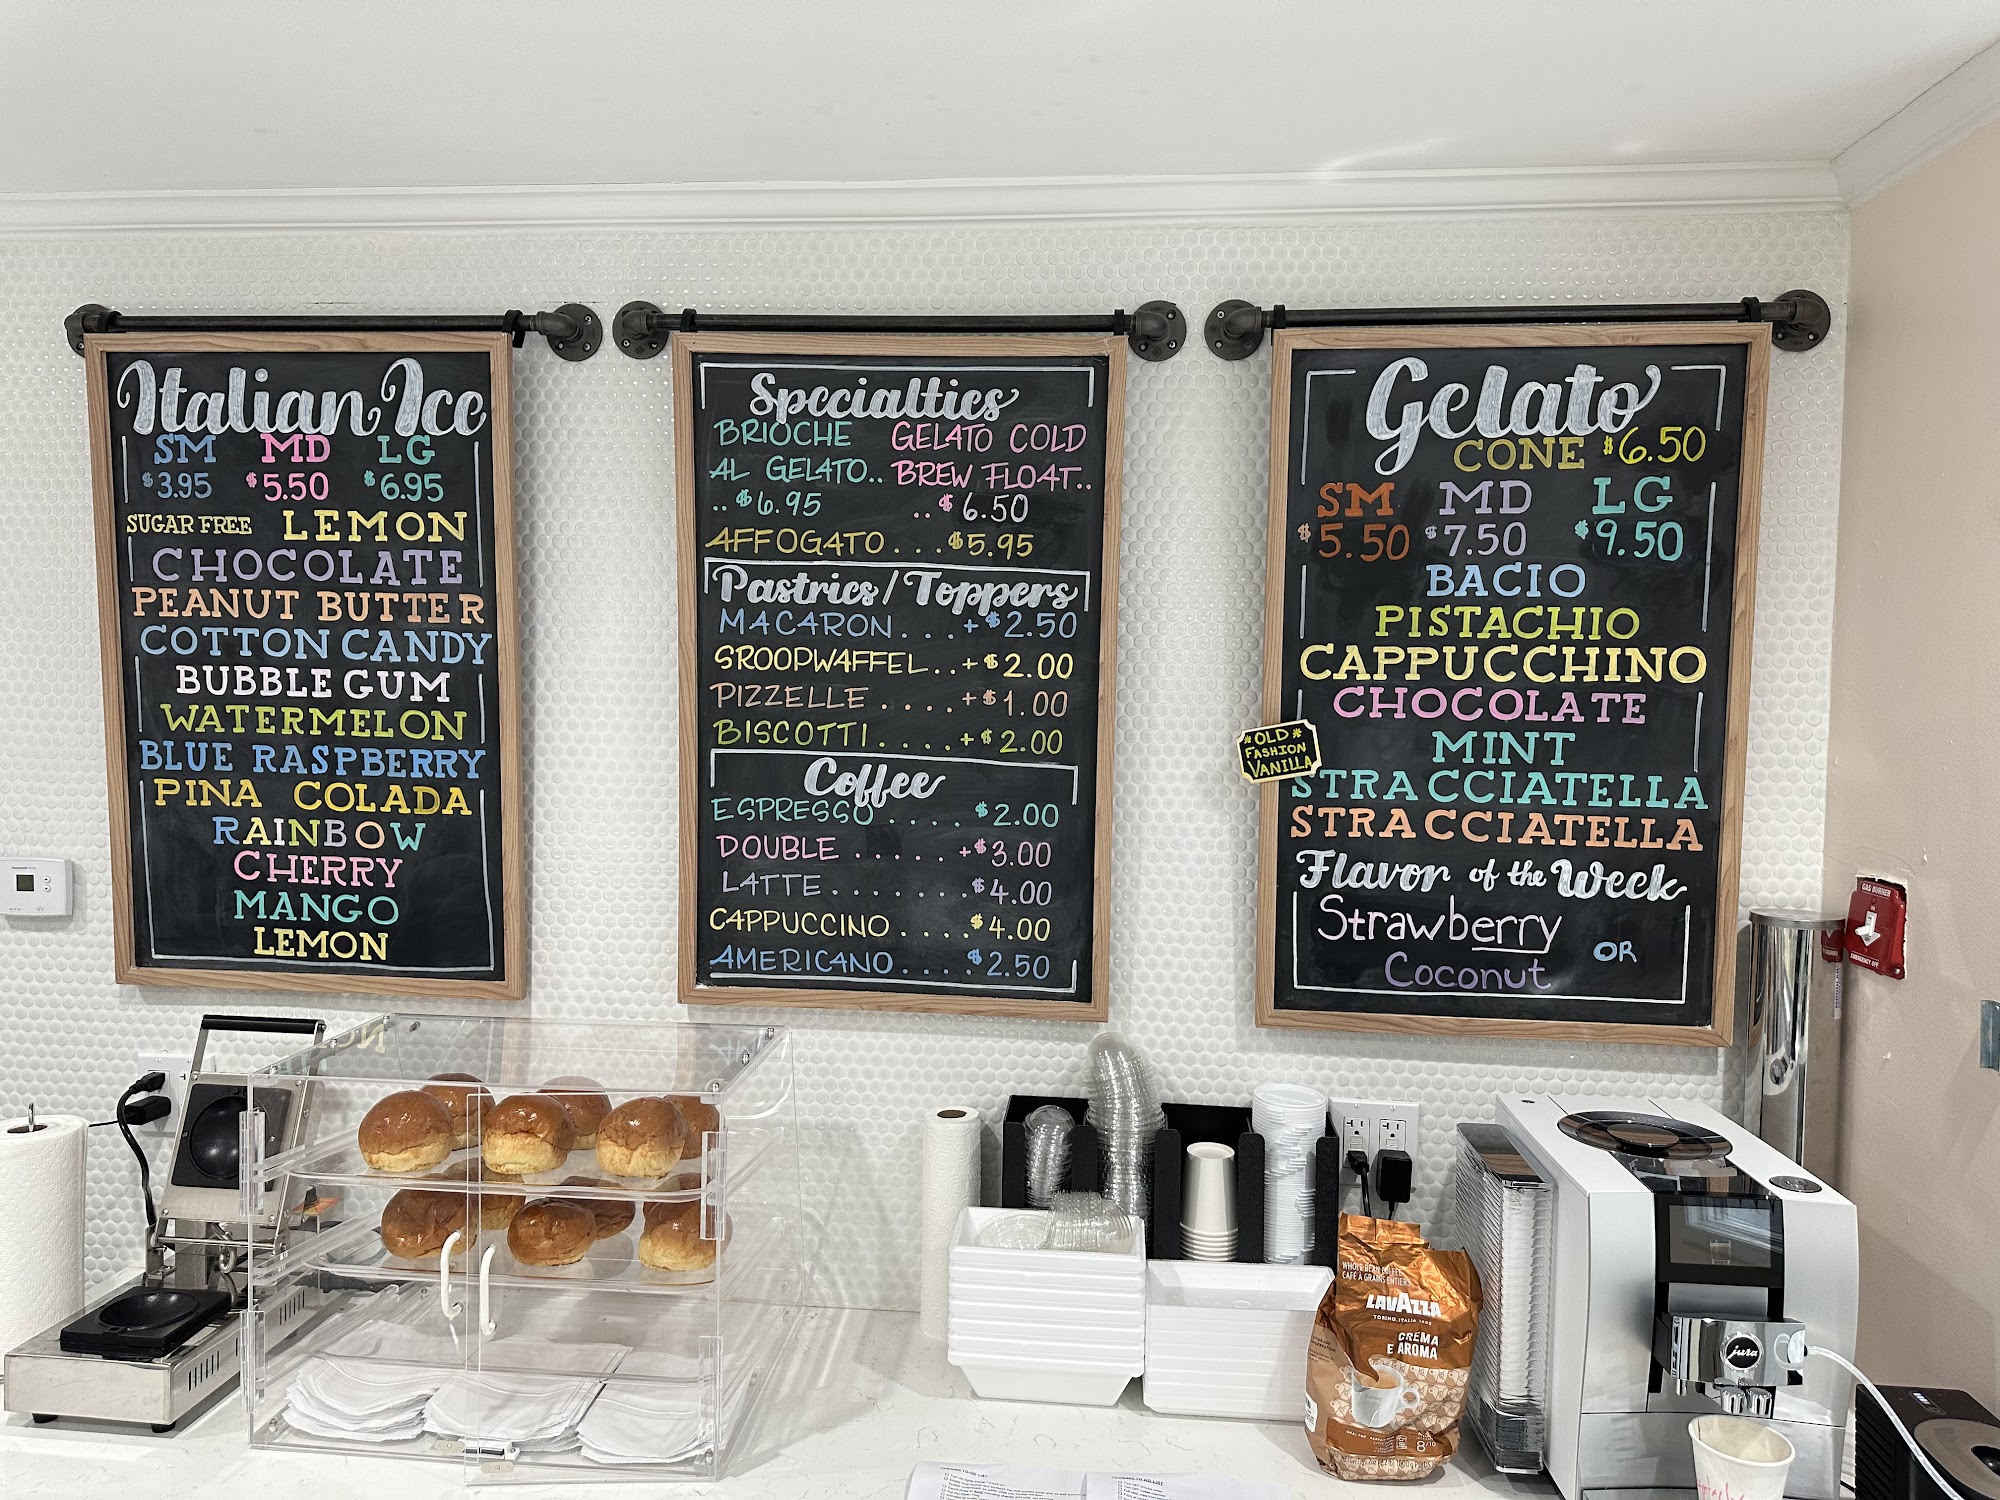 Italian Ice
SM MD LG
$3.95 $5.50 $6.95
SUGAR FREE LEMON
CHOCOLATE
PEANUT BUTTER
COTTON CANDY
BUBBLE GUM
WATERMELON
BLUE RASPBERRY
PINA COLADA
RAINBOW
CHERRY
MANGO
LEMON
Specialties
BRIOCHE
AL GELATO..
..$6.95
GELATO COLD
BREW FLOAT..
..$6.50
AFFOGATO...$5.95
Pastries/Toppers
MACARON...+$2.50
SROOPWAFFEL..+$2.00
PIZZELLE....+$1.00
BISCOTTI....+$2.00
Coffee
ESPRESSO.... $2.00
DOUBLE.....+$3.00
LATTE.......$4.00
CAPPUCCINO....$4.00
AMERICANO....$2.50
Gelato
CONE $6.50
SM MD LG
$5.50 $7.50 $9.50
BACIO
PISTACHIO
CAPPUCCHINO
CHOCOLATE
MINT
STRACCIATELLA
STRACCIATELLA
*OLD*
FASHION
VANILLA
Flavor of the Week
Strawberry
OR
Coconut
GAS BURNER
EMERGENCY OFF
WHOLE BEAN COFFEE
CAFÉ À GRAINS ENTIERS
LAVAZZA
TORINO, ITALIA, 1895
CREMA
E AROMA
jura